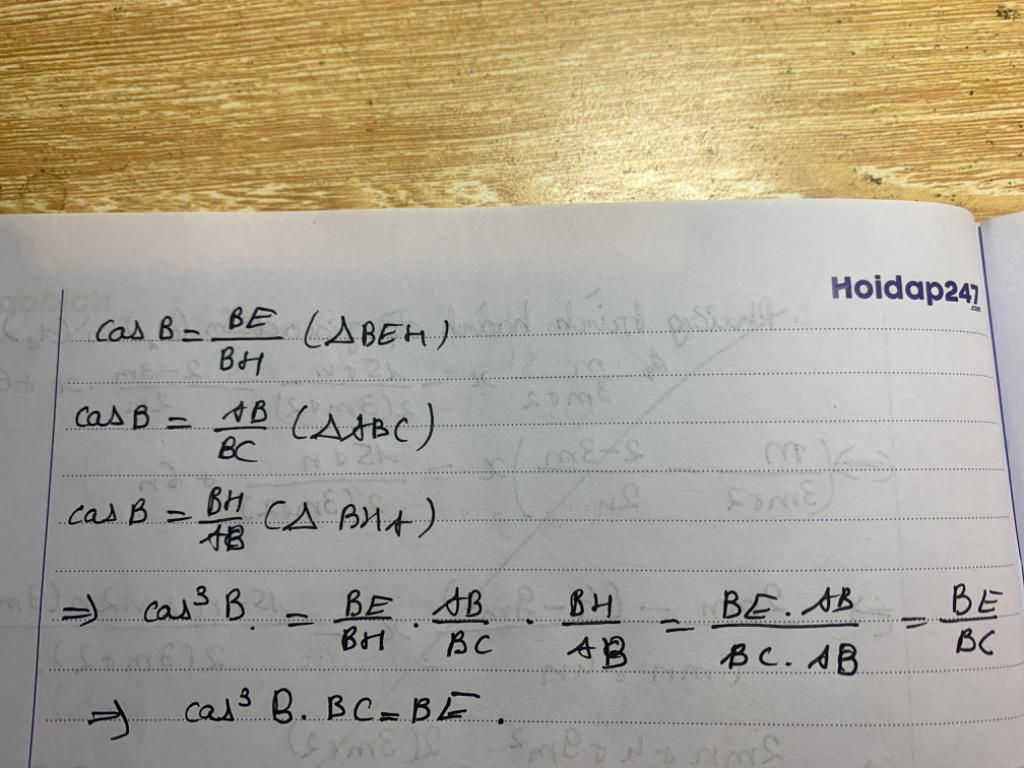 Hoidap247
.com
cos B = BE/BH (ΔBEH)
cos B = AB/BC (ΔABC)
cos B = BH/AB (Δ BHA)
=> cos³ B. = BE/BH . AB/BC . BH/AB = BE . AB/BC . AB = BE/BC
=> cos³ B. BC = BE.